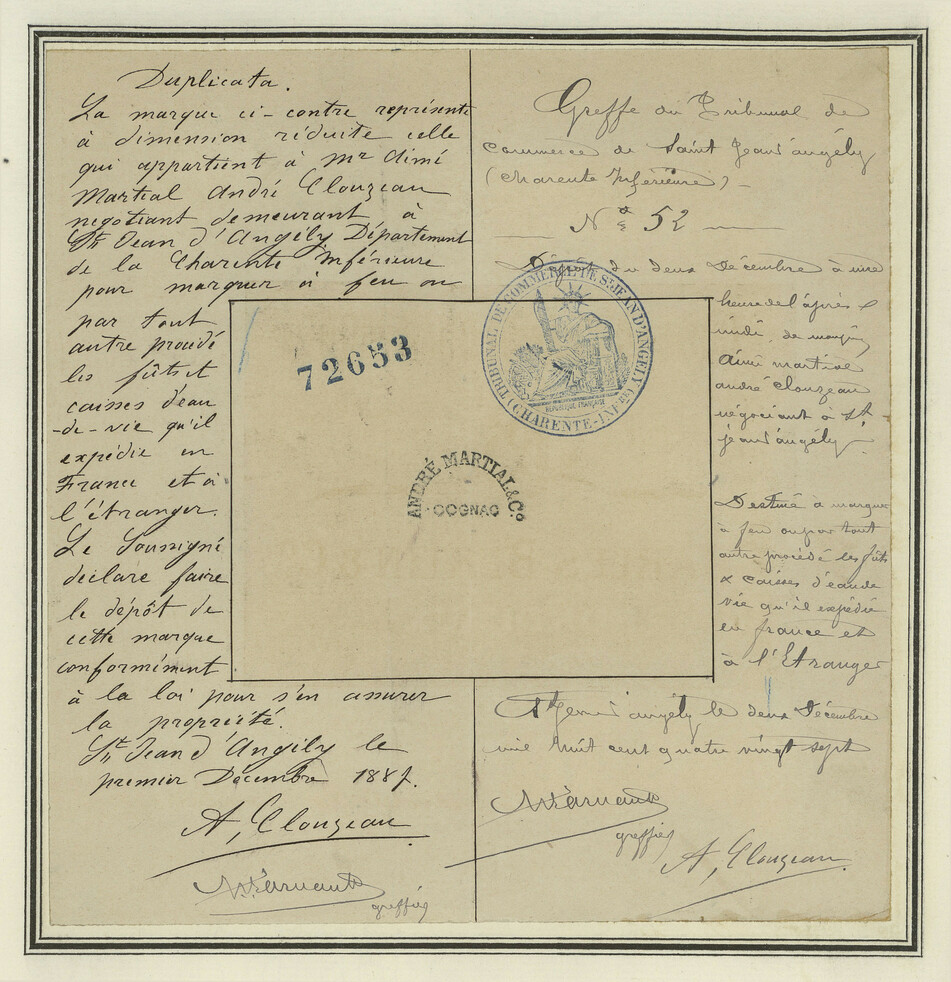 Duplicata.
La marque ci-contre représente
à dimension réduite celle
qui appartient à Mr Aimé
Martial André Clouzeau
négotiant demeurant à
St Jean d'Angély Département
de la Charente Inférieure
pour marquer à feu ou
par tout
autre procédé
les fûts et
caisses d'eau
-de-vie qu'il
expédie en
France et à
l'étranger.
Le Soussigné
déclare faire
le dépôt de
cette marque
conformément
à la loi pour s'en assurer
la propriété.
St Jean d'Angély le
premier Décembre 1887.
A, Clouzeau
greffier
72653
TRIBUNAL DE COMMERCE DE St JEAN D'ANGELY
(CHARENTE-INFre)
REPUBLIQUE FRANÇAISE
ANDRÉ MARTIAL & Co
COGNAC
Greffe du Tribunal de
Commerce de Saint Jean d'angély
(Charente Inférieure) -
No 52
Dépôt du deux Décembre à une
heure de l'après
midi, de
Aimé martial
andré Clouzeau
négociant à St-
jean d'angély
Destiné à marquer
à feu ou par tout
autre procédé les fûts
& caisses d'eau de
vie qu'il expédie
en france et
à l'Etranger
St Jean angély le deux Décembre
mil huit cent quatre vingt sept
greffier
A, Clouzeau